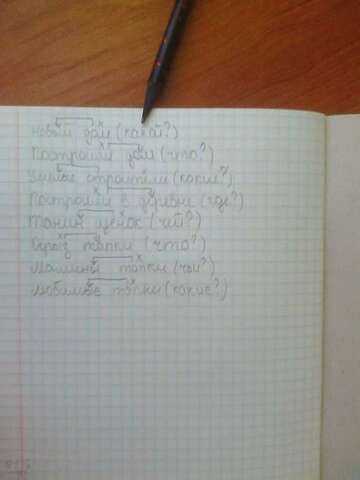 Новый дом (какой?)
Построили дом (что?)
Умные строители (какие?)
Построили в деревне (где?)
Танин щенок (чей?)
тапки (что?)
Мамины тапки (чьи?)
Любимые тапки (какие?)